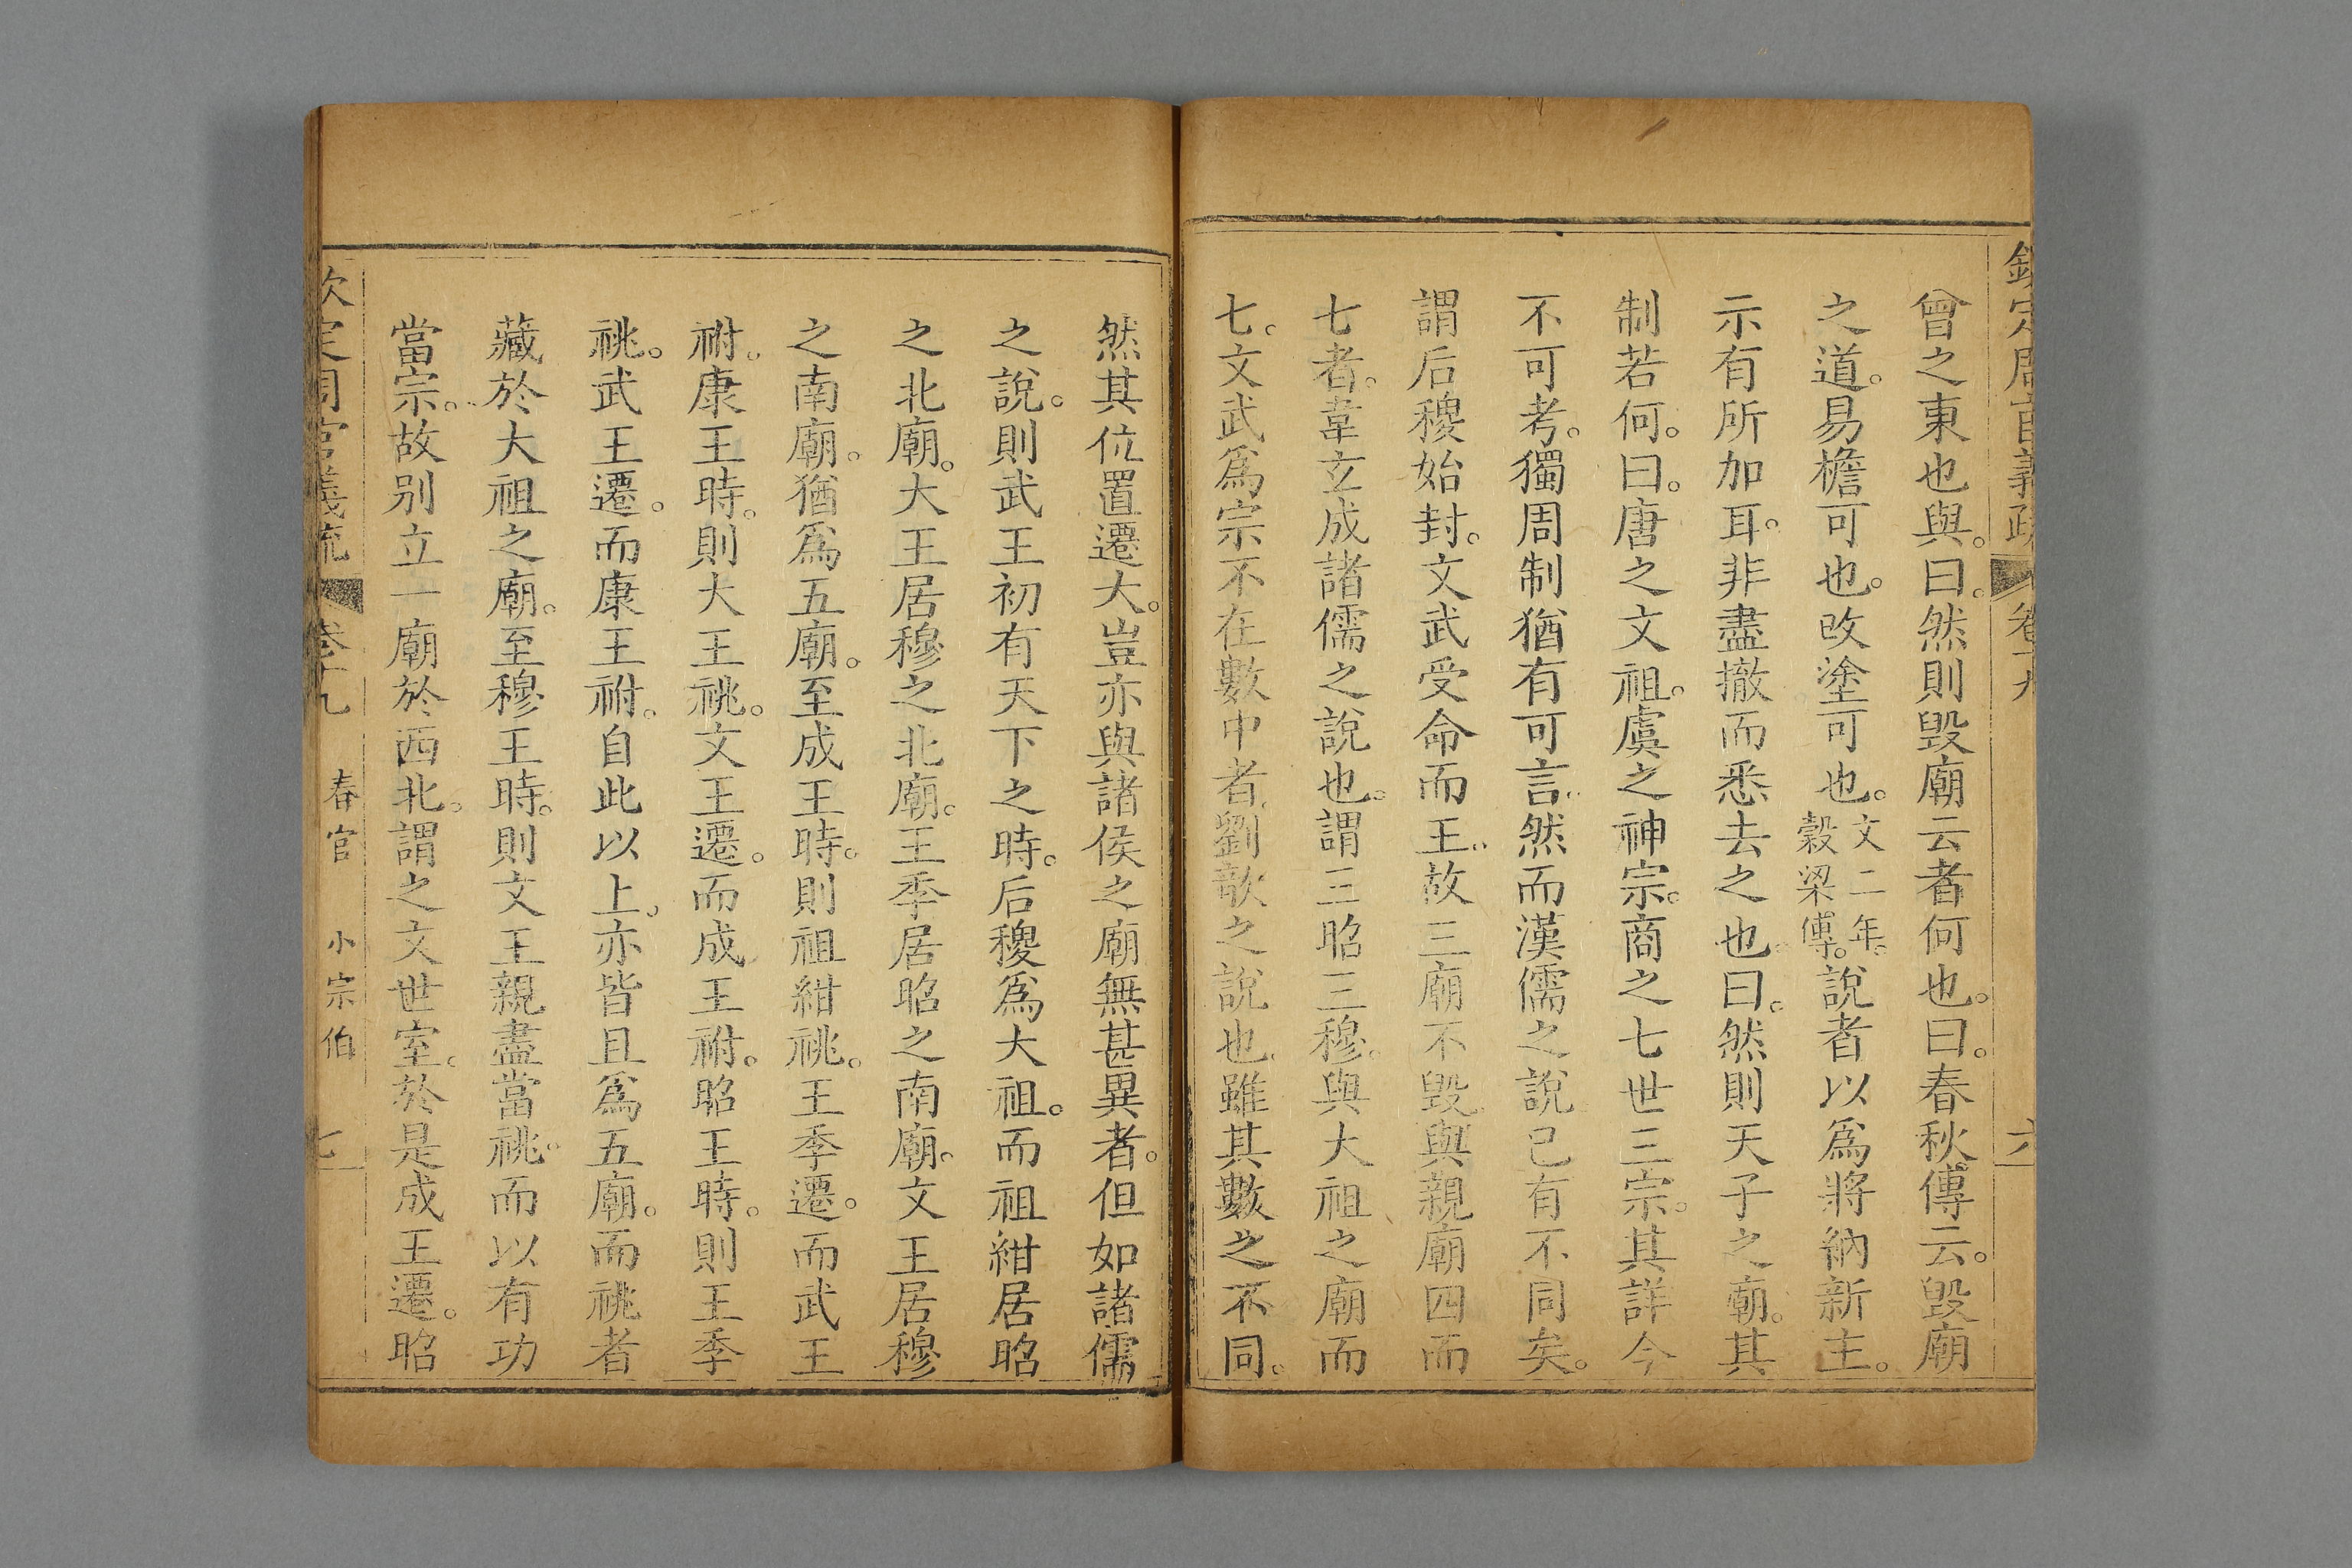 欽定周官義疏 卷十九 六
曾之東也與。曰。然則毀廟云者何也。曰。春秋傳云。毀廟
之道。易檐可也。改塗可也。文二年。穀梁傳。說者以爲將納新主。
示有所加耳。非盡撤而悉去之也。曰。然則天子之廟。其
制若何。曰。唐之文祖。虞之神宗。商之七世三宗。其詳今
不可考。獨周制猶有可言。然而漢儒之說已有不同矣。
謂后稷始封。文武受命而王。故三廟不毀。與親廟四而
七者。韋玄成諸儒之說也。謂三昭三穆。與大祖之廟而
七。文武爲宗不在數中者。劉歆之說也。雖其數之不同。
然其位置遷大。豈亦與諸侯之廟無甚異者。但如諸儒
之說。則武王初有天下之時。后稷爲大祖。而祖紺居昭
之北廟。大王居穆之北廟。王季居昭之南廟。文王居穆
之南廟。猶爲五廟。至成王時。則祖紺祧。王季遷。而武王
祔。康王時。則大王祧。文王遷。而成王祔。昭王時。則王季
祧。武王遷。而康王祔。自此以上。亦皆且爲五廟。而祧者
藏於大祖之廟。至穆王時。則文王親盡當祧。而以有功
當宗。故别立一廟於西北。謂之文世室。於是成王遷。昭
欽定周官義疏 卷十九 春官 小宗伯 七